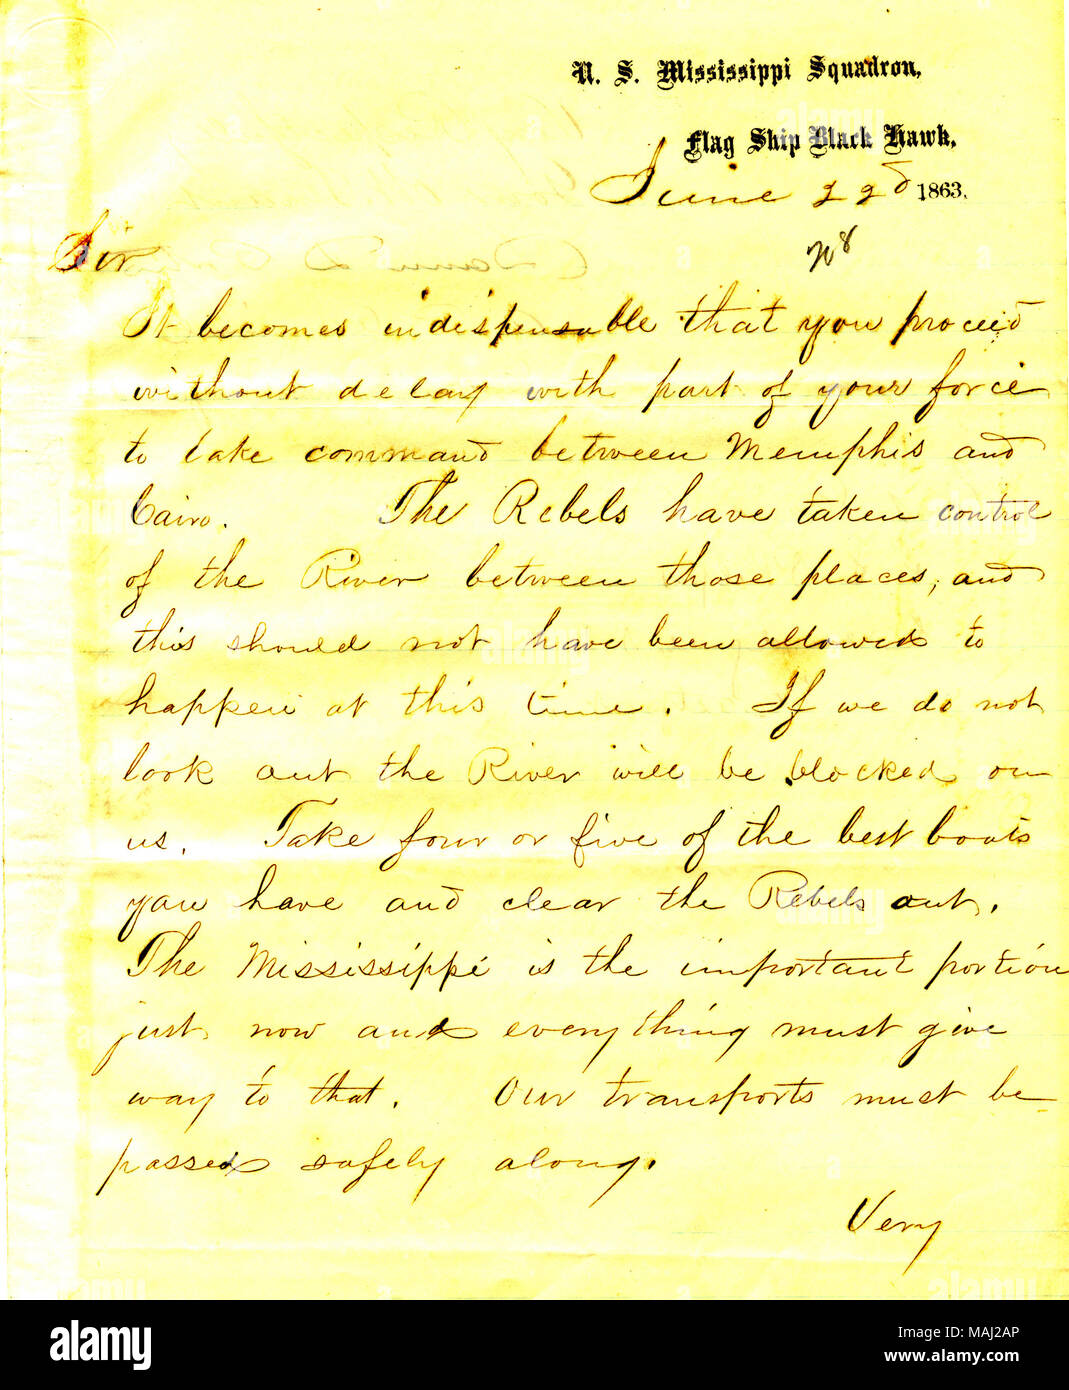 U. S. Mississippi Squadron,
Flag Ship Black Hawk,
June 22d 1863.
Sir
It becomes indispensable that you proceed
without delay with part of your force
to take command between Memphis and
Cairo. The Rebels have taken control
of the River between those places, and
this should not have been allowed to
happen at this time. If we do not
look out the River will be blocked on
us. Take four or five of the best boats
you have and clear the Rebels out.
The Mississippi is the important portion
just now and everything must give
way to that. Our transports must be
passed safely along.
Very
alamy
Image ID: MAJ2AP
www.alamy.com